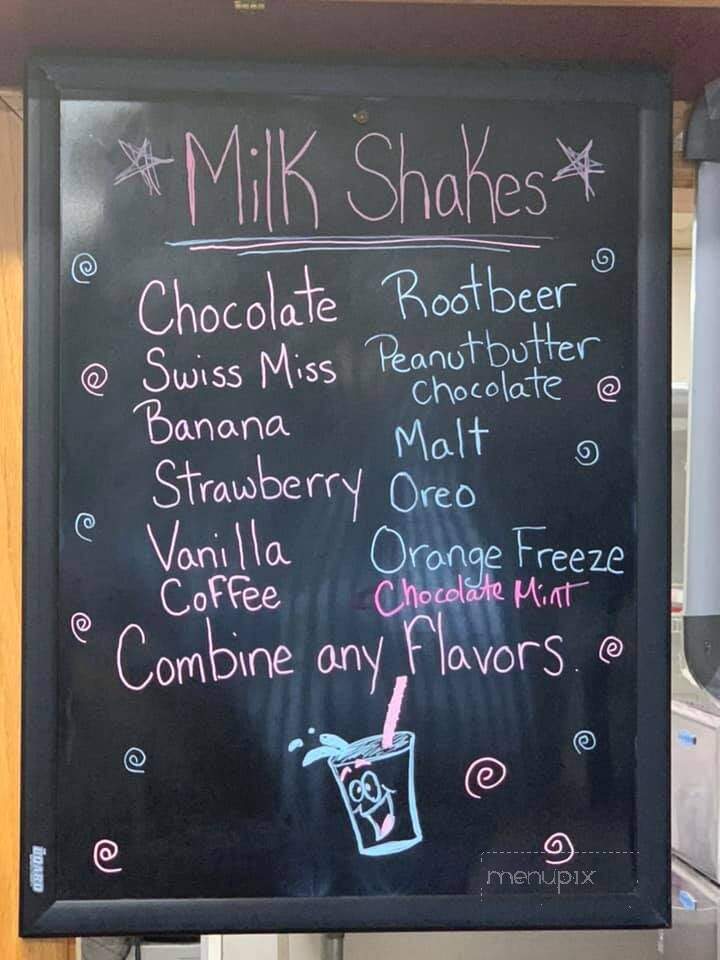 Milk Shakes
Chocolate
Swiss Miss
Banana
Strawberry
Vanilla
Coffee
Rootbeer
Peanutbutter
chocolate
Malt
Oreo
Orange Freeze
Chocolate Mint
Combine any Flavors.
menupix